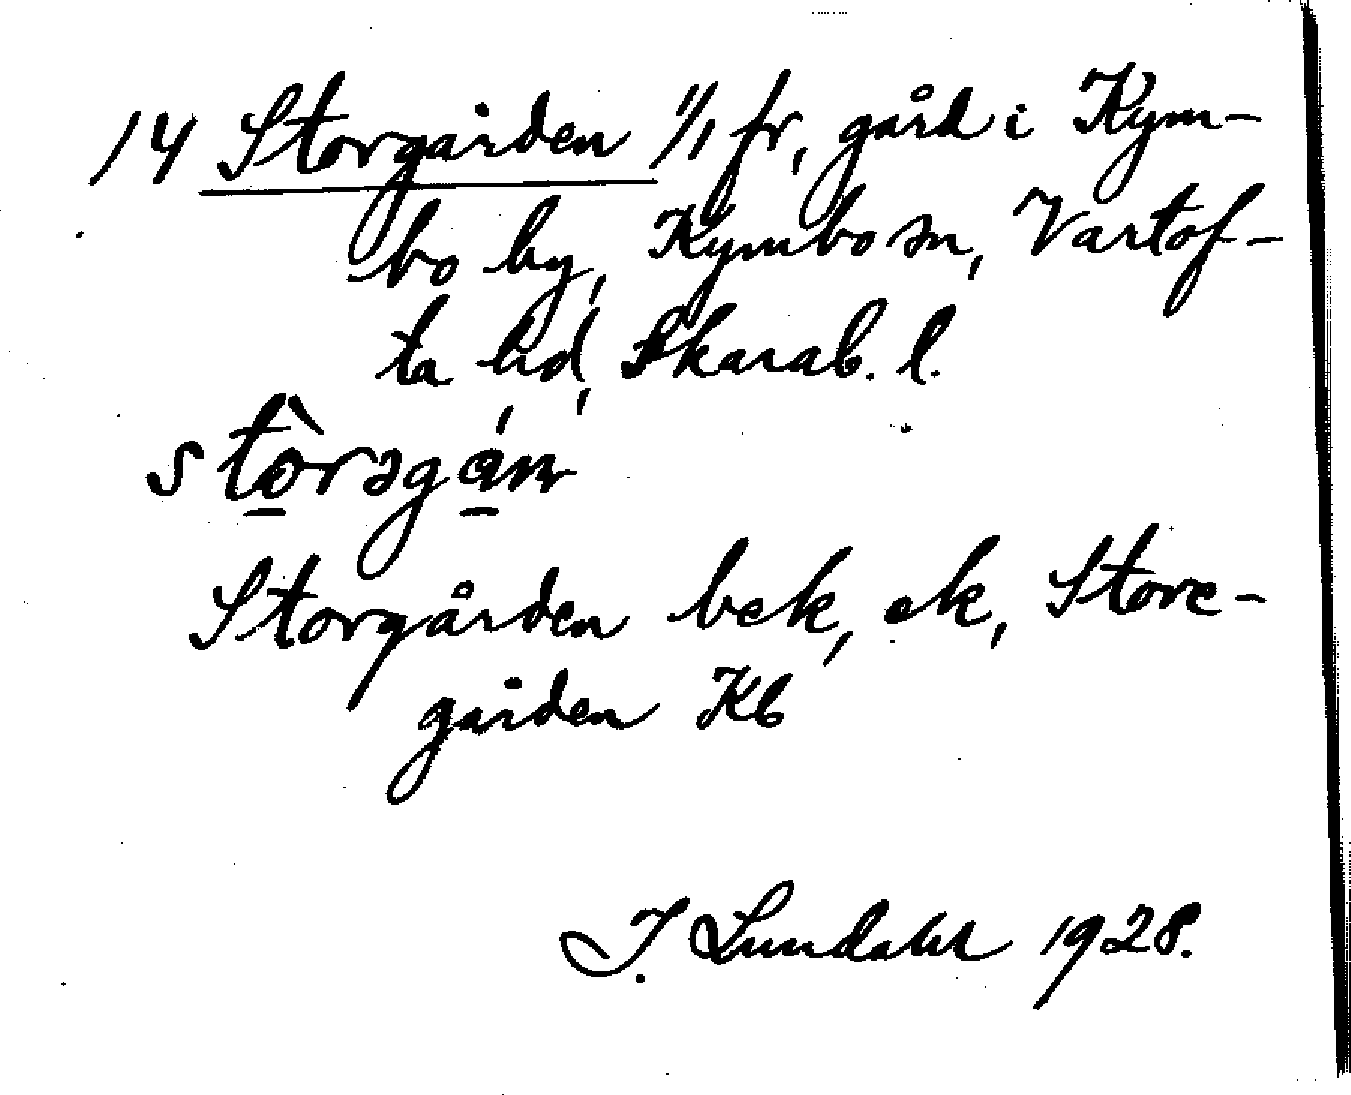 14 Storgården 1/1 fr, gård i Kym-
bo by, Kymbo sn, Vartof-
ta hd, Skarab. l.
stò̱rəgá̱ṇ
Storgården bek, ek, Store-
gården Kb
I. Lundahl 1928.